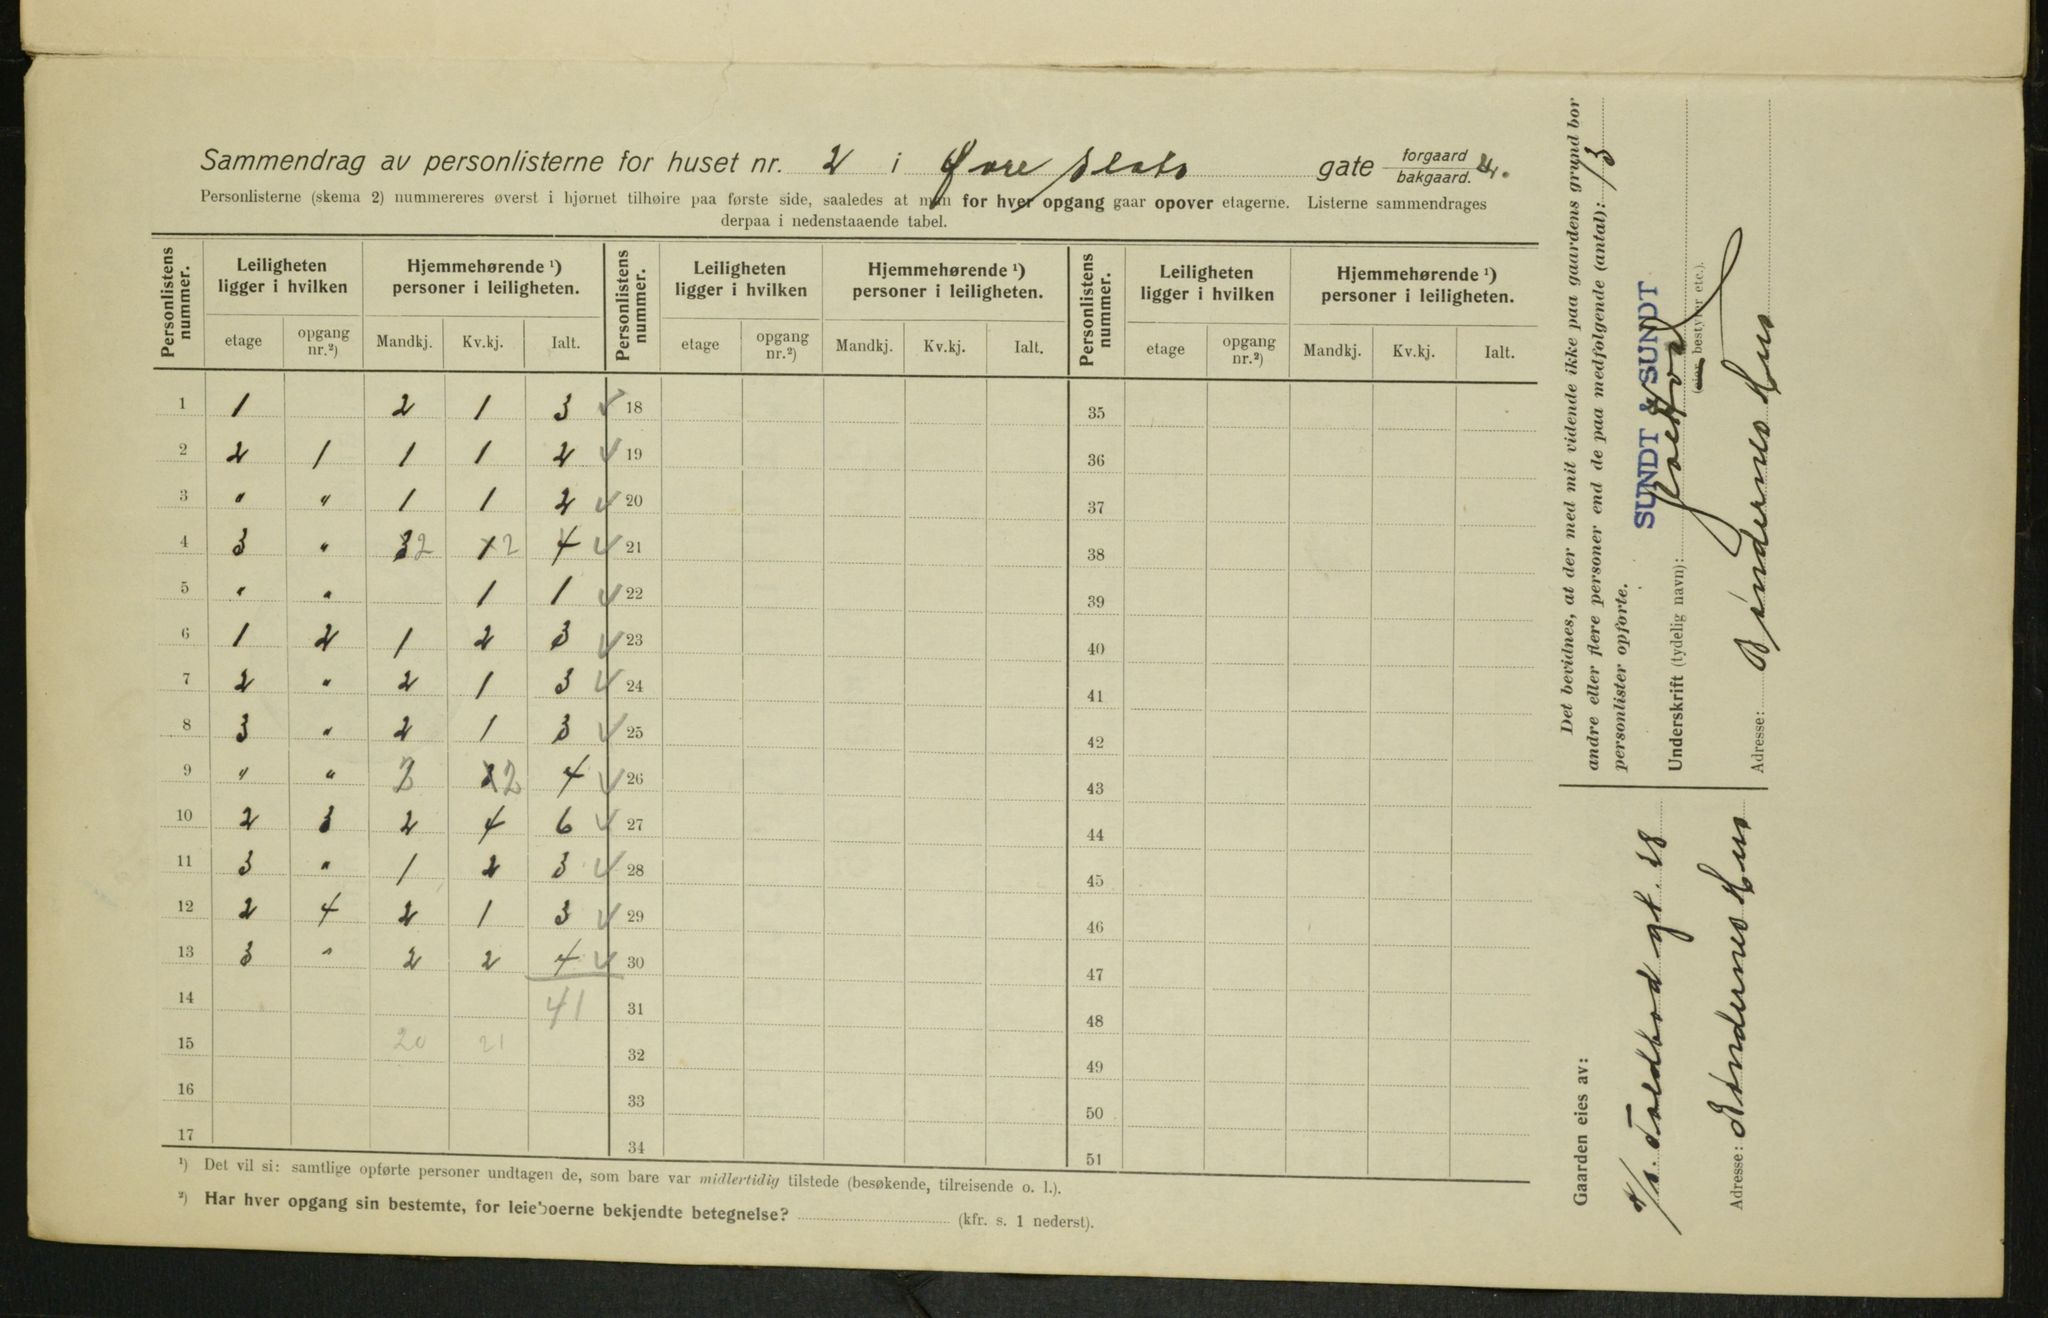 Sammendrag av personlisterne for huset nr. 2 i Øvre Slots gate forgaard bakgaard.
Personlisterne (skema 2) nummereres øverst i hjørnet tilhøire paa første side, saaledes at man for hver opgang gaar opover etagerne. Listerne sammendrages
derpaa i nedenstaaende tabel.
Personlistens nummer. Leiligheten ligger i hvilken Hjemmehørende ¹) personer i leiligheten. Personlistens nummer. Leiligheten ligger i hvilken Hjemmehørende ¹) personer i leiligheten. Personlistens nummer. Leiligheten ligger i hvilken Hjemmehørende ¹) personer i leiligheten.
etage opgang nr.²) Mandkj. Kv.kj. Ialt. etage opgang nr.²) Mandkj. Kv.kj. Ialt. etage opgang nr.²) Mandkj. Kv.kj. Ialt.
1 1 2 1 3 ✓ 18 35
2 2 1 1 1 2 ✓ 19 36
3 " " 1 1 2 ✓ 20 37
4 3 " 3 2 1 2 4 ✓ 21 38
5 " " 1 1 ✓ 22 39
6 1 2 1 2 3 ✓ 23 40
7 2 " 2 1 3 ✓ 24 41
8 3 " 2 1 3 ✓ 25 42
9 " " 2 2 4 ✓ 26 43
10 2 3 2 4 6 ✓ 27 44
11 3 " 1 2 3 ✓ 28 45
12 2 4 2 1 3 ✓ 29 46
13 3 " 2 2 4 ✓ 30 47
14 41 31 48
15 20 21 32 49
16 33 50
17 34 51
¹) Det vil si: samtlige opførte personer undtagen de, som bare var midlertidig tilstede (besøkende, tilreisende o. l.).
²) Har hver opgang sin bestemte, for leieboerne bekjendte betegnelse? (kfr. s. 1 nederst).
Det bevidnes, at der med mit vidende ikke paa gaardens grund bor
andre eller flere personer end de paa medfolgende (antal): 13
personlister opforte.
SUNDT & SUNDT
Underskrift (tydelig navn):
(eier, bestyrer etc.).
Adresse: Bøndernes Hus
Gaarden eies av:
A/S. Toldbod gt. 28
Adresse: Bøndernes Hus